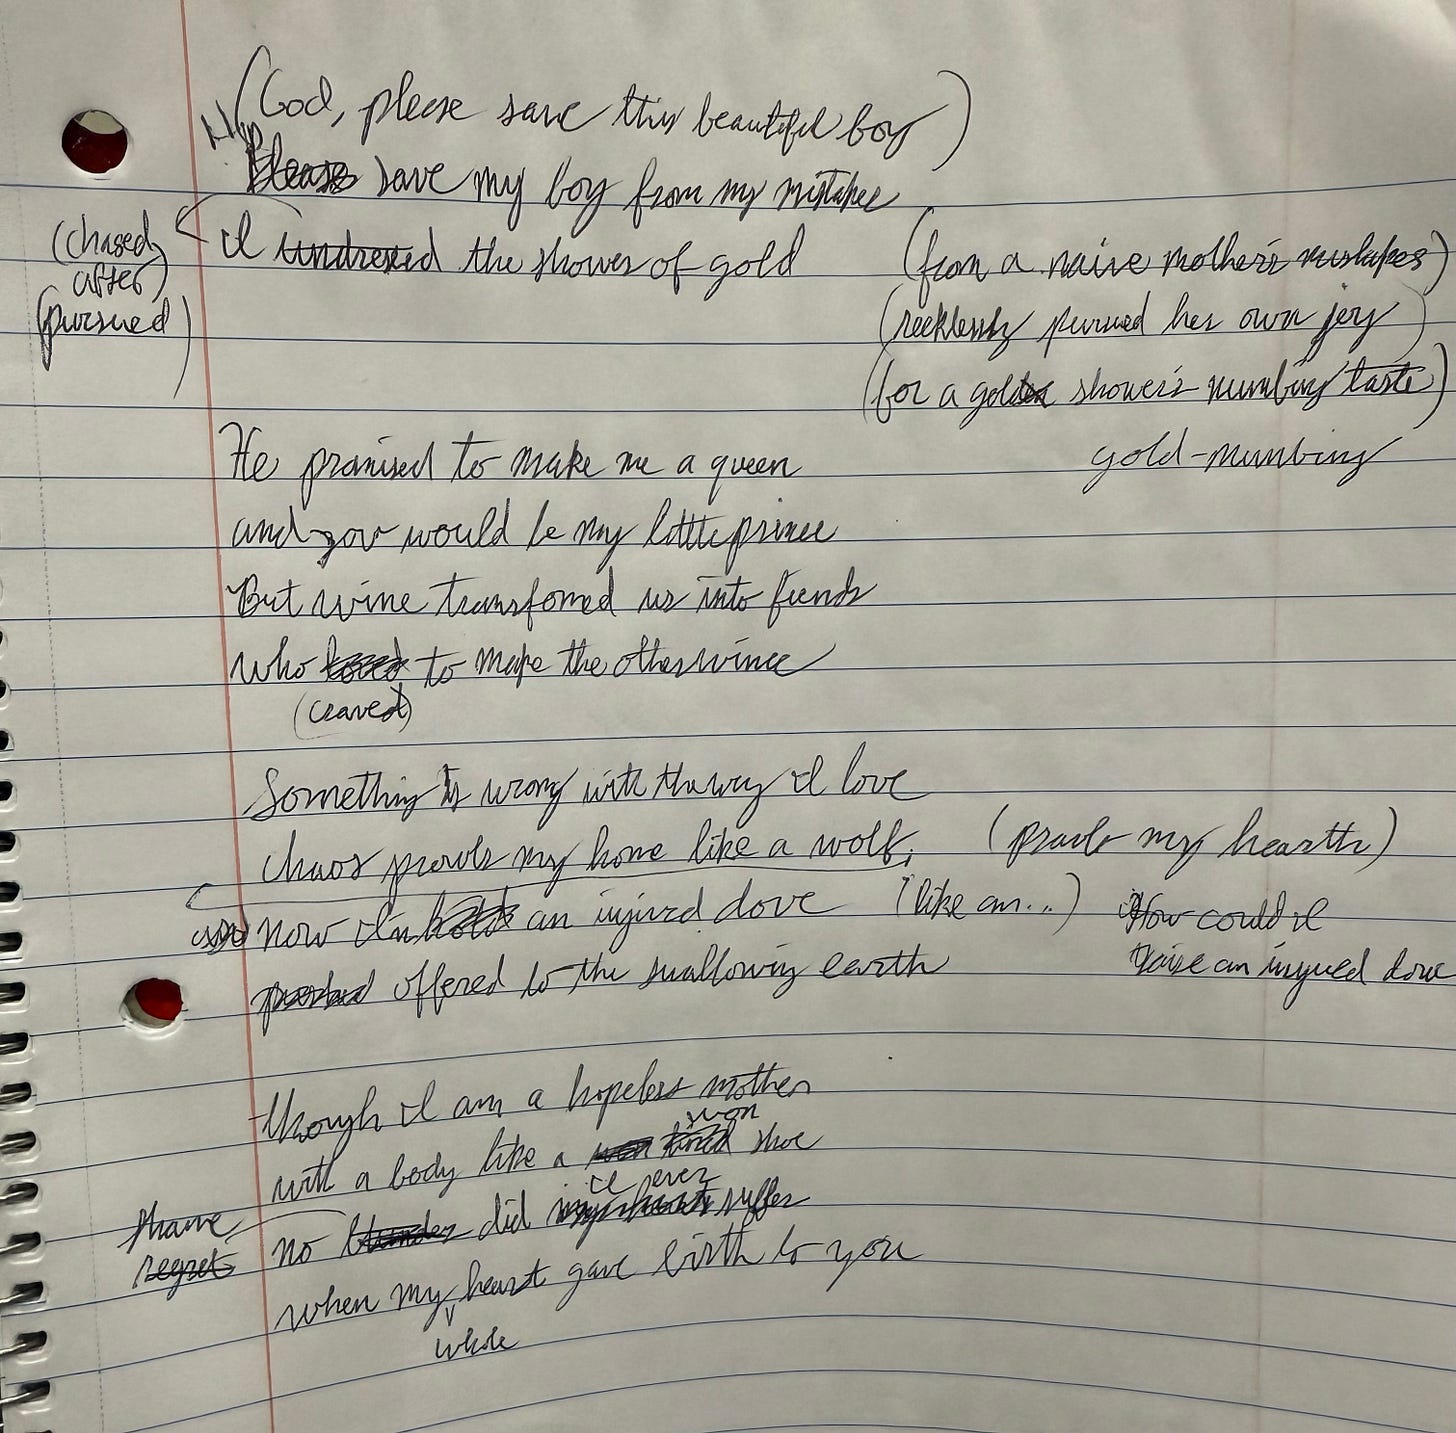 (God, please save this beautiful boy)
Please save my boy from my mistakes
(chased after) (pursued)
I undressed the shower of gold
(from a naive mother's mistakes)
(recklessly pursued her own joy)
(for a golden shower's numbing taste)
gold-numbing
He promised to make me a queen
and you would be my little prince
But wine transfomed us into fiends
who loved to make the other wince
(craved)
Something is wrong with the way I love
chaos prowls my home like a wolf; (prowls my hearth)
now I'm an injured dove (like an...)
How could I
raise an injured dove
offered to the swallowing earth
though I am a hopeless mother
worn
with a body like a shoe
I ever
shame
regret
no blunder did suffer
when my heart gave birth to you
whole